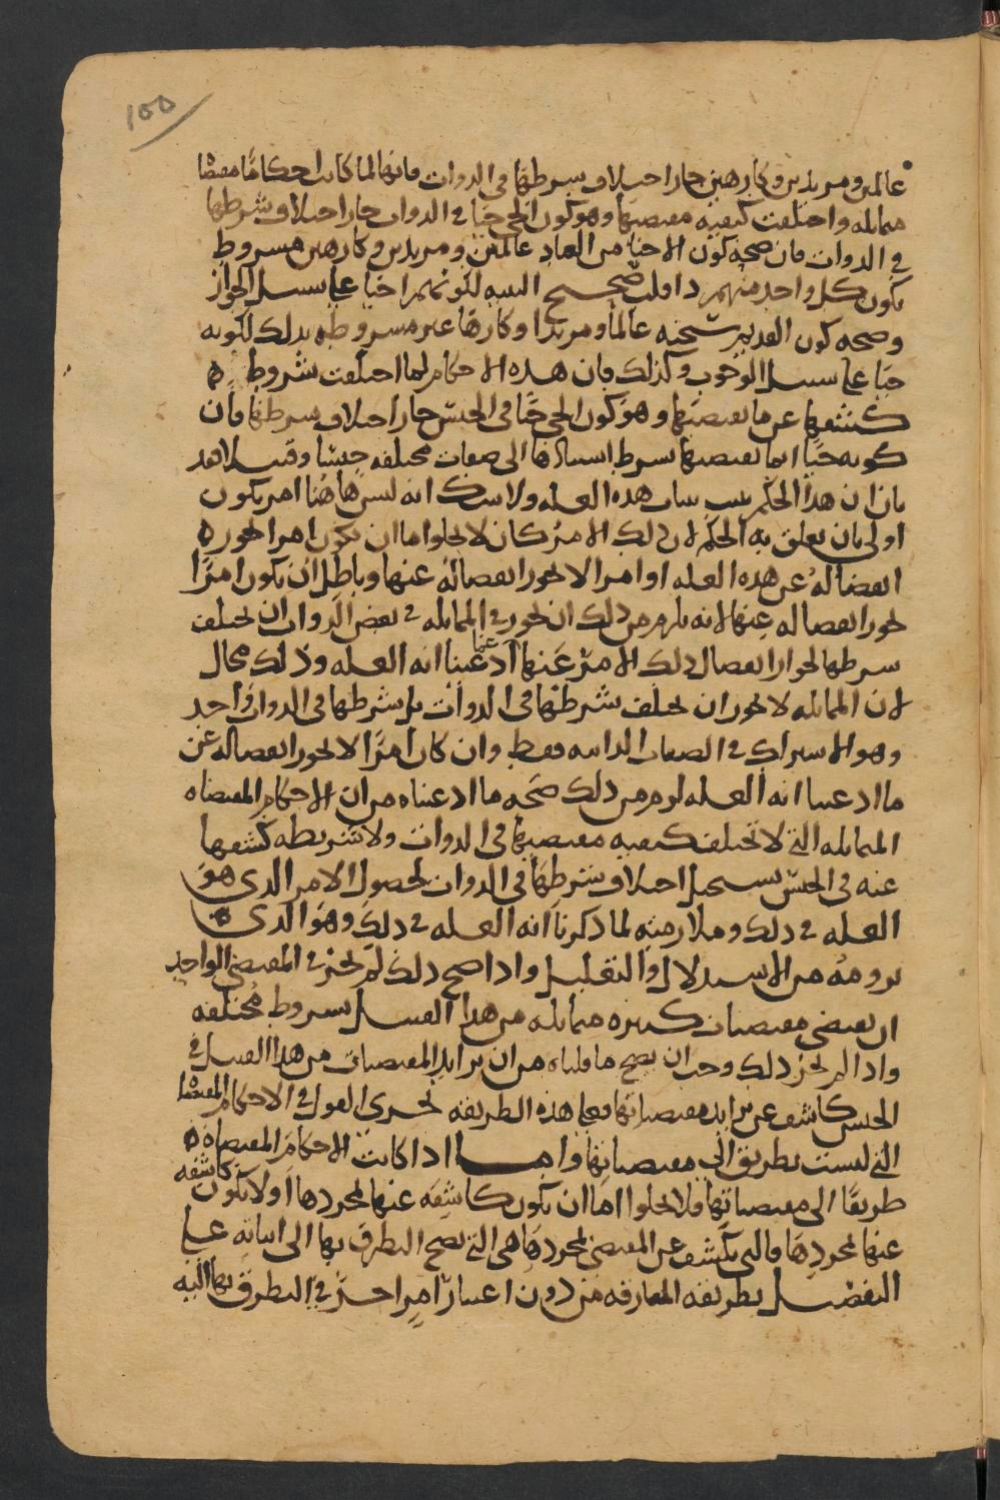 100
عالمين ومريدين وكارهين جاز اختلاف شرطها في الذوات فانها لما كانت احكاما مقتضاة
متماثلة واختلفت كيفية مقتضيها وهو كون الحي حيا في الذوات جاز اختلاف شرطها
في الذوات فان صحة كون الاحيا من العباد عالمين ومريدين وكارهين مشروط
بكون كل واحد منهم ذا قلب صحيح البنية لكونهم احيا على سبيل الجواز
وصحة كون القديم سبحنه عالما ومريدا وكارها غير مشروطة بذلك لكونه
حيا على سبيل الوجوب وكذلك فان هذه الاحكام لما اختلفت شروط
كشفها عن ما يقتضيها وهو كون الحي حيا في الجنس جاز اختلاف شرطها فان
كونه حيا انما يقتضيها بشرط استنادها الى صفات مختلفة جنسا وقبيلا فقد
بان ان هذا الحكم يثبت بثبات هذه العلة ولا شك انه ليس هاهنا امر يكون
اولى بان يعلق به الحكم لان ذلك الامر كان لا يخلوا اما ان يكون امرا يجوز
انفصاله عن هذه العلة او امرا لا يجوز انفصاله عنها وباطل ان يكون امرا
يجوز انفصاله عنها لانه يلزم من ذلك ان يجوز في المماثلة في بعض الذوات ان يختلف
شرطها لجواز انفصال ذلك الامر عنها عما ادعينا انه العلة وذلك محال
لان المماثلة لا يجوز ان يختلف شرطها في الذوات بل شرطها في الذوات واحد
وهو الاشتراك في الصفات الذاتية فقط وان كان امرا لا يجوز انفصاله عن
ما ادعينا انه العلة لزم من ذلك صحة ما ادعيناه من ان الاحكام المقتضاة
المتماثلة التي لا تختلف كيفية مقتضيها في الذوات ولا شريطة كشفها
عنه في الجنس يستحيل اختلاف شرطها في الذوات لحصول الامر الذي هو
العلة في ذلك وملازمته لما ذكرنا انه العلة في ذلك وهو الذي
نرومه من الاستدلال والتعليل واذا صح ذلك لم يجز في المقتضي الواحد
ان يقتضي مقتضيات كثيرة متماثلة من هذا القبيل بشروط مختلفة
واذا لم يجز ذلك وجب ان يصح ما قلناه من ان تزايد المقتضيات من هذا القبيل في
الجنس كاشف عن تزايد مقتضياتها فعلى هذه الطريقة يجري القول في الاحكام المقتضاة
التي ليست بطريق الى مقتضياتها واما اذا كانت الاحكام المقتضاة
طريقا الى مقتضياتها فلا يخلوا اما ان يكون كاشفة عنها لمجردها او لا يكون كاشفة
عنها لمجردها فالتي يكشف عن المقتضي لمجردها هي التي يصح التطرق بها الى اثباته على
التفصيل بطريقة المفارقة من دون اعتبار امر اخر في التطرق بها اليه